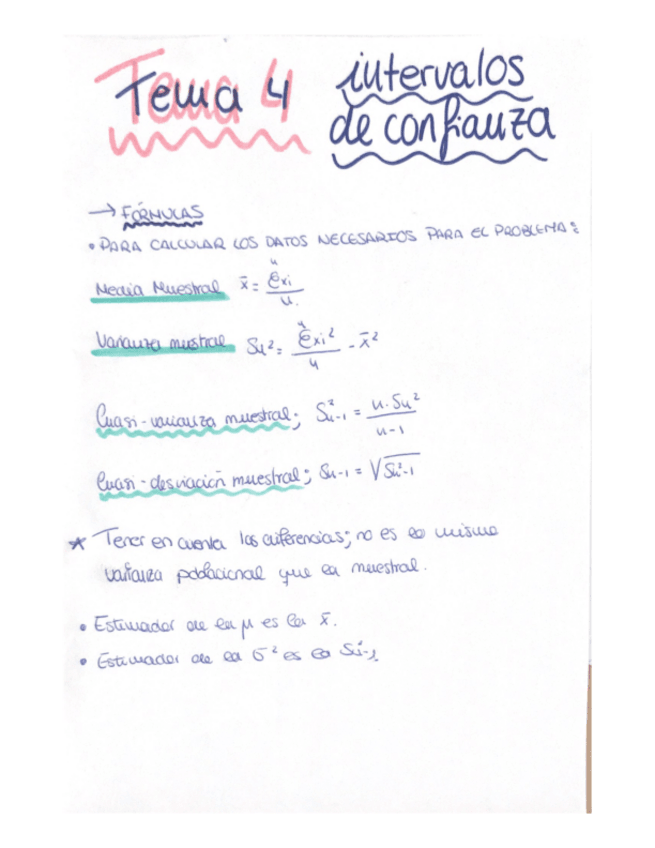 Tema 4 intervalos
de confianza
→ FÓRMULAS
• PARA CALCULAR LOS DATOS NECESARIOS PARA EL PROBLEMA:
Media Muestral x̄ = Σⁿxi / n.
Varianza mustral Sn² = Σⁿxi² / n - x̄²
Cuasi-varianza muestral; S²n-1 = n·Sn² / n-1
Cuasi-desviación muestral; Sn-1 = √S²n-1
* Tener en cuenta las diferencias; no es lo mismo
varianza poblacional que la muestral.
• Estimador de la μ es la x̄.
• Estimador de la σ² es la S²n-1